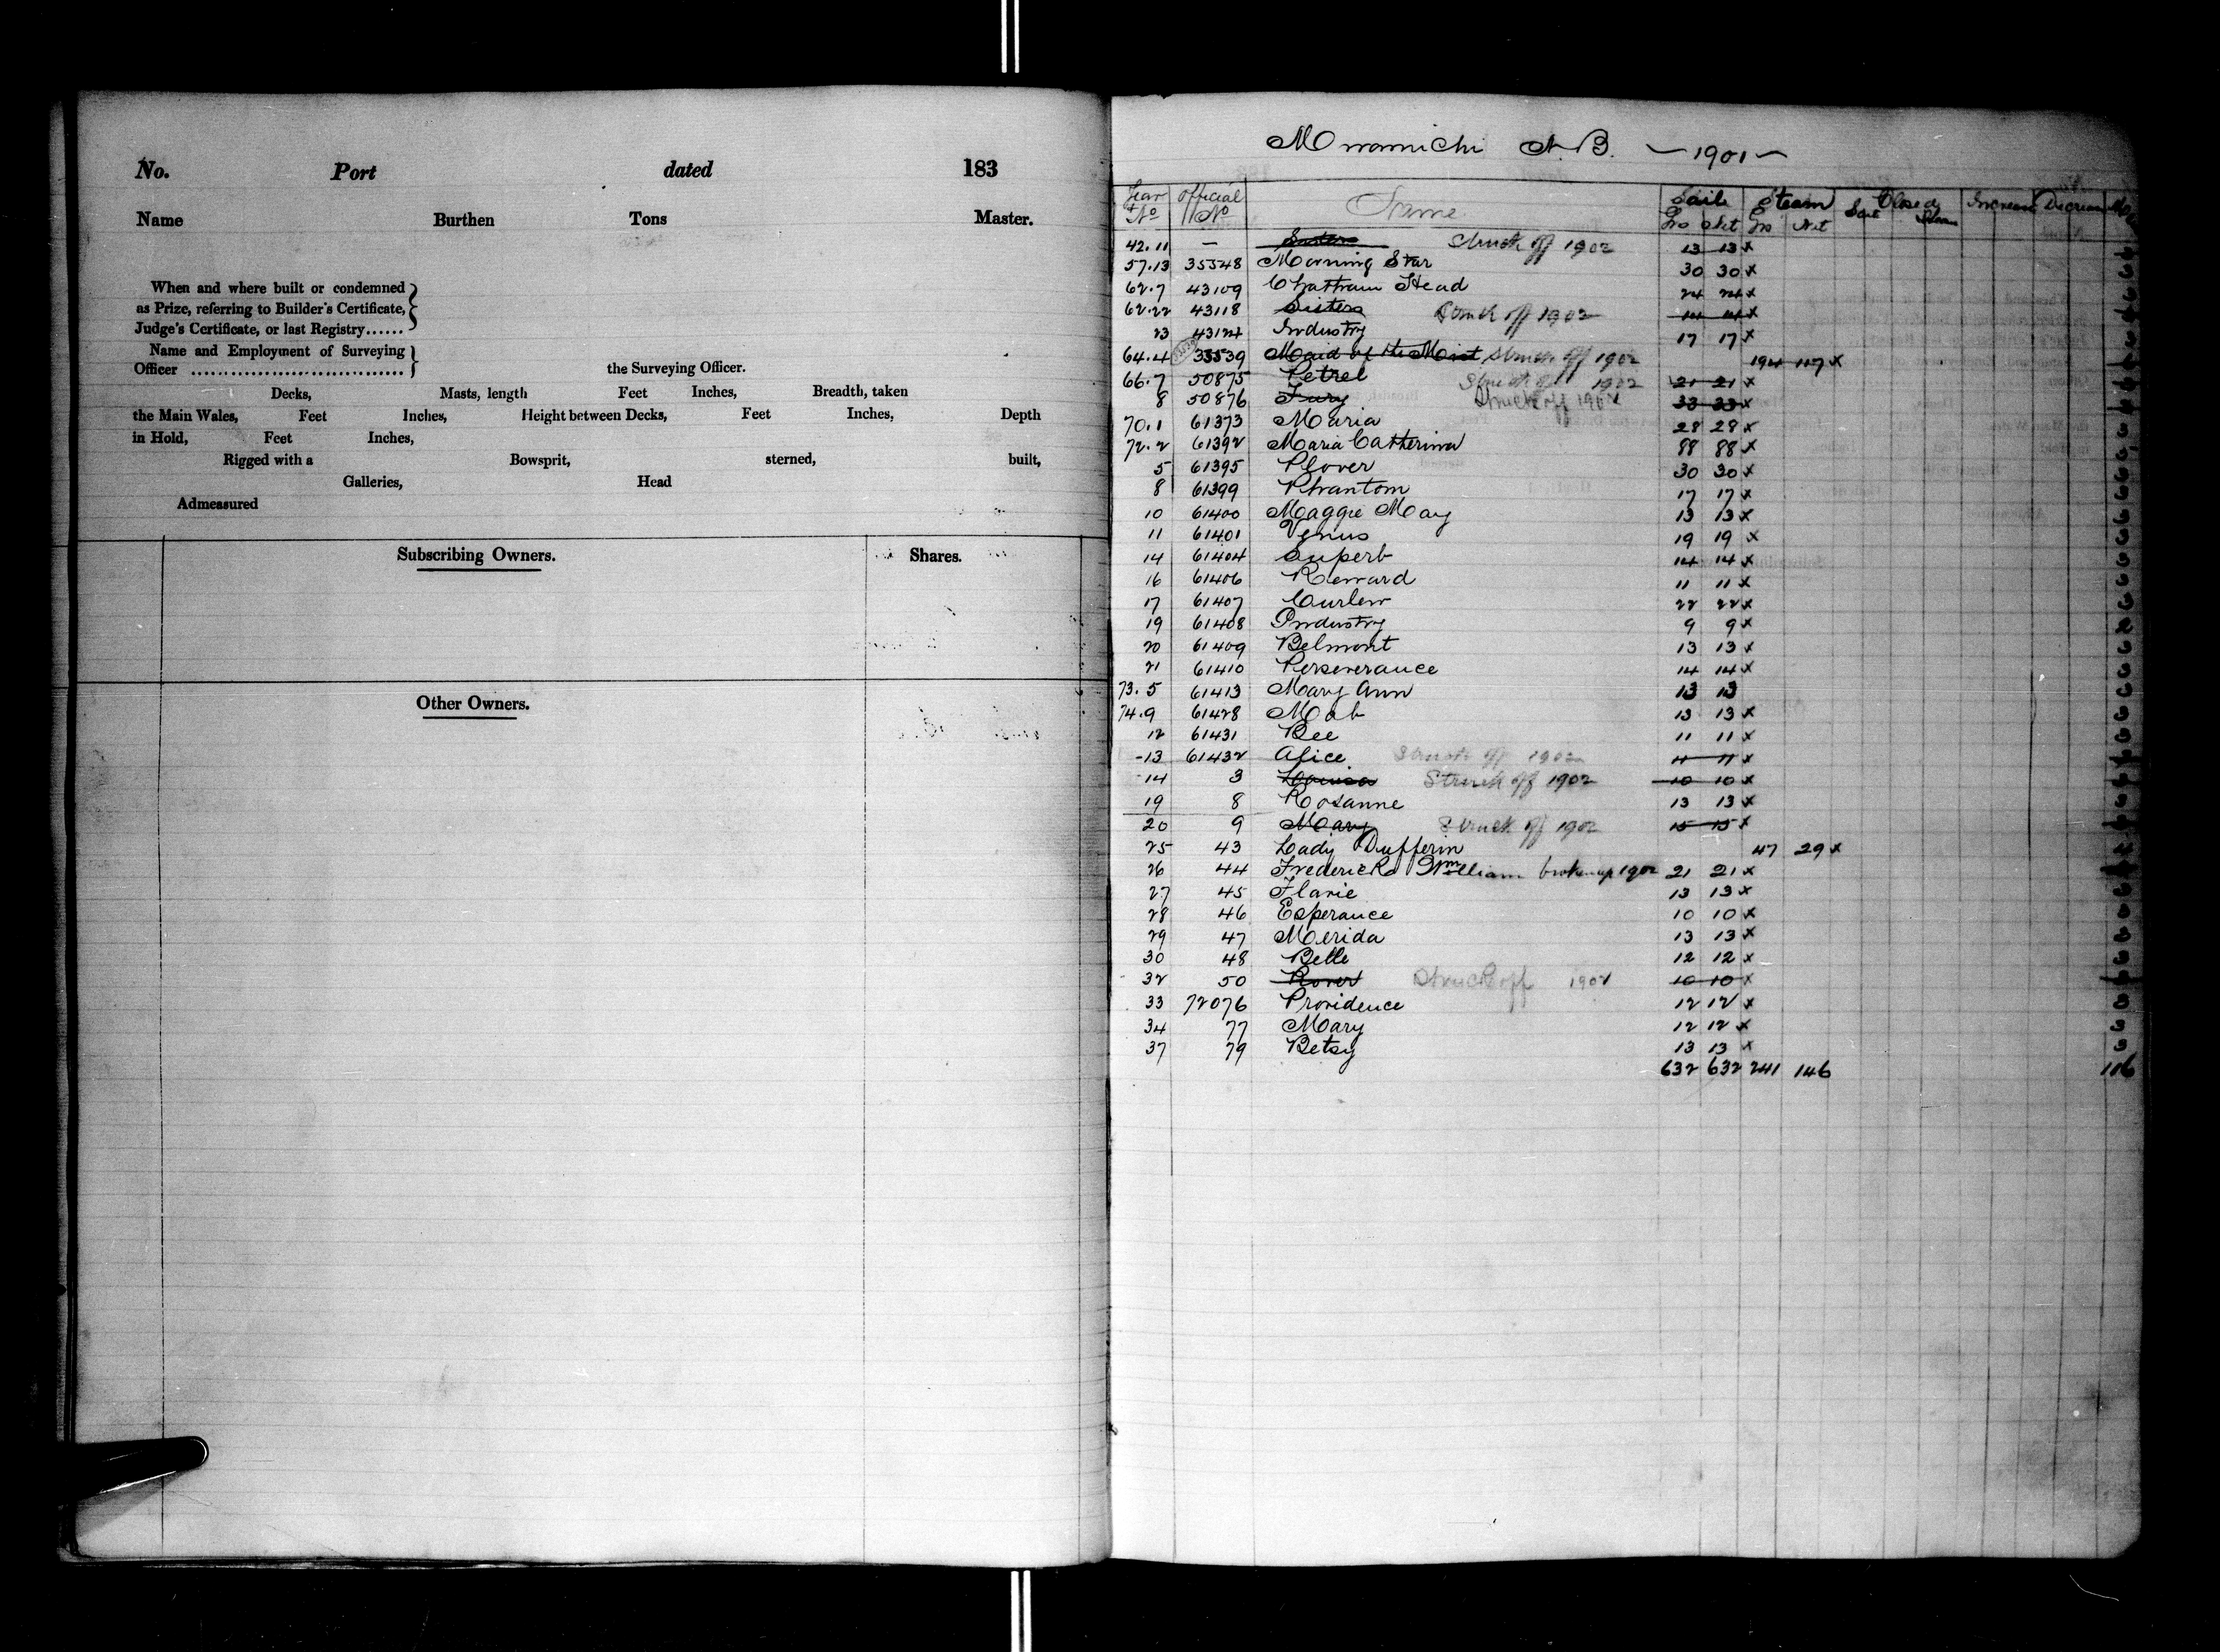 No. Port dated 183
Name Burthen Tons Master.
When and where built or condemned
as Prize, referring to Builder's Certificate,
Judge's Certificate, or last Registry......
Name and Employment of Surveying
Officer .............................. the Surveying Officer.
Decks, Masts, length Feet Inches, Breadth, taken
the Main Wales, Feet Inches, Height between Decks, Feet Inches, Depth
in Hold, Feet Inches,
Rigged with a Bowsprit, sterned, built,
Galleries, Head
Admeasured
Subscribing Owners. Shares.
Other Owners.
Miramichi N.B. — 1901 —
Year No Official No Name Sail Steam Closed Increase Decrease
Gro Net Gro Net Sail Steam
42.11 — Sisters Struck off 1902 13 13 x
57.13 35548 Morning Star 30 30 x 3
62.7 43109 Chatham Head 24 24 x
62.22 43118 Sisters Struck off 1902 14 14 x
23 43124 Industry 17 17 x 3
64.4 35539 Maid of the Mist Struck off 1902 194 117 x
66.7 50875 Petrel Struck off 1902 21 21 x
8 50876 Fury Struck off 1902 33 33 x
70.1 61373 Maria 28 28 x
72.2 61392 Maria Catherina 88 88 x
5 61395 Plover 30 30 x 3
8 61399 Phantom 17 17 x 3
10 61400 Maggie May 13 13 x 3
11 61401 Venus 19 19 x 3
14 61404 Superb 14 14 x 3
16 61406 Reward 11 11 x 3
17 61407 Curlew 22 22 x 3
19 61408 Industry 9 9 x 2
20 61409 Belmont 13 13 x 3
21 61410 Perseverance 14 14 x 3
73.5 61413 Mary Ann 13 13 3
74.9 61428 Mab 13 13 x 3
12 61431 Bee 11 11 x 3
-13 61432 Alice Struck off 1902 11 11 x
14 3 Louisa Struck off 1902 10 10 x
19 8 Rosanne 13 13 x 3
20 9 Mary Struck off 1902 15 15 x
25 43 Lady Dufferin 47 29 x
26 44 Frederick William broken up 1902 21 21 x
27 45 Flavie 13 13 x 3
28 46 Esperance 10 10 x 3
29 47 Merida 13 13 x 3
30 48 Belle 12 12 x 3
32 50 Rover Struck off 1902 10 10 x
33 72076 Providence 12 12 x 3
34 77 Mary 12 12 x 3
37 79 Betsy 13 13 x 3
632 632 241 146 116